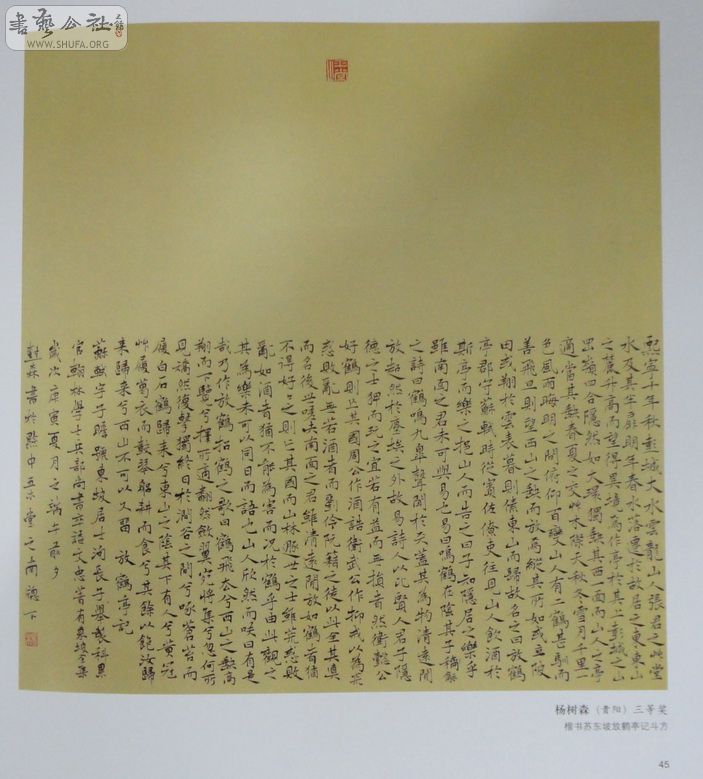 書藝公社
WWW.SHUFA.ORG
熙寧十年秋彭城大水雲龍山人張君之草堂
水及其半扉明年春水落遷於故居之東東山
之麓升高而望得異境焉作亭於其上彭城之山
岡嶺四合隱然如大環獨缺其西一面而山人之亭
適當其缺春夏之交草木際天秋冬雪月千里一
色風雨晦明之間俯仰百變山人有二鶴甚馴而
善飛旦則望西山之缺而放焉縱其所如或立陂
田或翔於雲表暮則傃東山而歸故名之曰放鶴
亭郡守蘇軾時從賓佐僚吏往見山人飲酒於
斯亭而樂之挹山人而告之曰子知隱居之樂乎
雖南面之君未可與易也易曰鳴鶴在陰其子和
之詩曰鶴鳴九臯聲聞於天蓋其為物清遠閒
放超然於塵埃之外故易詩人以比賢人君子隱
德之士狎而玩之宜若有益而無損者然衛懿公
好鶴則亡其國周公作酒誥衛武公作抑戒以為荒
惑敗亂無若酒者而劉伶阮籍之徒以此全其真
而名後世嗟夫南面之君雖清遠閒放如鶴者猶
不得好好之則亡其國而山林遯世之士雖荒惑敗
亂如酒者猶不能為害而況於鶴乎由此觀之
其為樂未可以同日而語也山人欣然而笑曰有是
哉乃作放鶴招鶴之歌曰鶴飛去兮西山之缺高
翔而下覽兮擇所適翻然斂翼宛將集兮忽何所
見矯然復擊獨終日於澗谷之間兮啄蒼苔而
履白石鶴歸來兮東山之陰其下有人兮黃冠
草履葛衣而鼓琴躬耕而食兮其餘以飽汝歸
來歸來兮西山不可以久留 放鶴亭記
蘇軾字子瞻號東坡居士洵長子舉制科累
官翰林學士兵部尚書卒諡文忠著有東坡全集
歲次庚寅夏月之端午前夕
樹森書於黔中五木堂之南窗下
杨树森（青阳）三等奖
楷书苏东坡放鹤亭记斗方
45